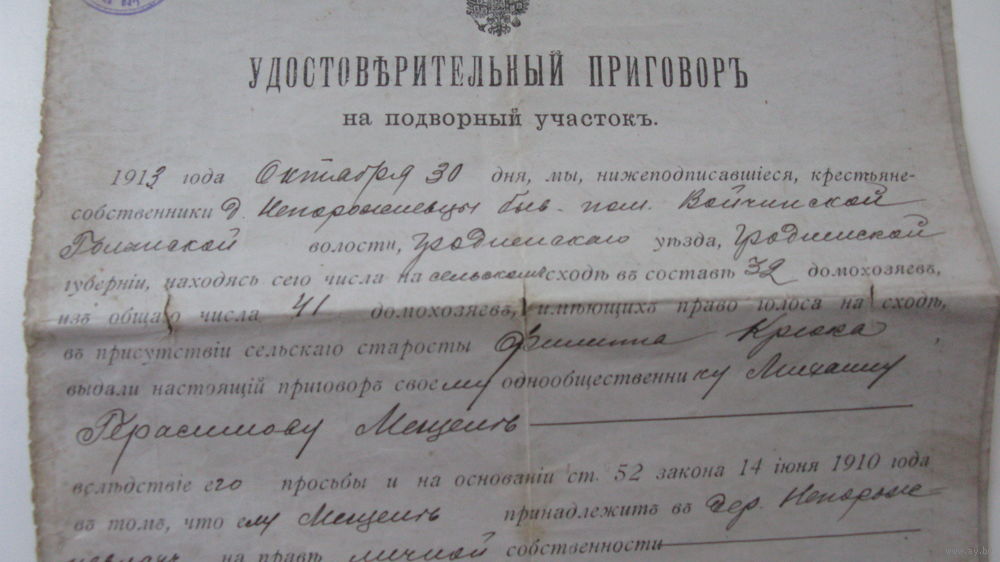 УДОСТОВѢРИТЕЛЬНЫЙ ПРИГОВОРЪ
на подворный участокъ.
1913 года Октября 30 дня, мы, нижеподписавшіеся, крестьяне-
собственники д. Непорожневцы быв. пом. Войчинской
волости, Гродненскаго уѣзда, Гродненской
губерніи, находясь сего числа на сельскомъ сходѣ въ составѣ 32 домохозяев,
изъ общаго числа 41 домохозяевъ, имѣющихъ право голоса на сходѣ,
въ присутствіи сельскаго старосты Филиппа Крюка
выдали настоящій приговоръ своему однообщественнику Михаилу
Герасимову
вслѣдствіе его просьбы и на основаніи ст. 52 закона 14 іюня 1910 года
въ томъ, что ему принадлежитъ въ дер. Непорож-
на правѣ личной собственности
www.ay.by